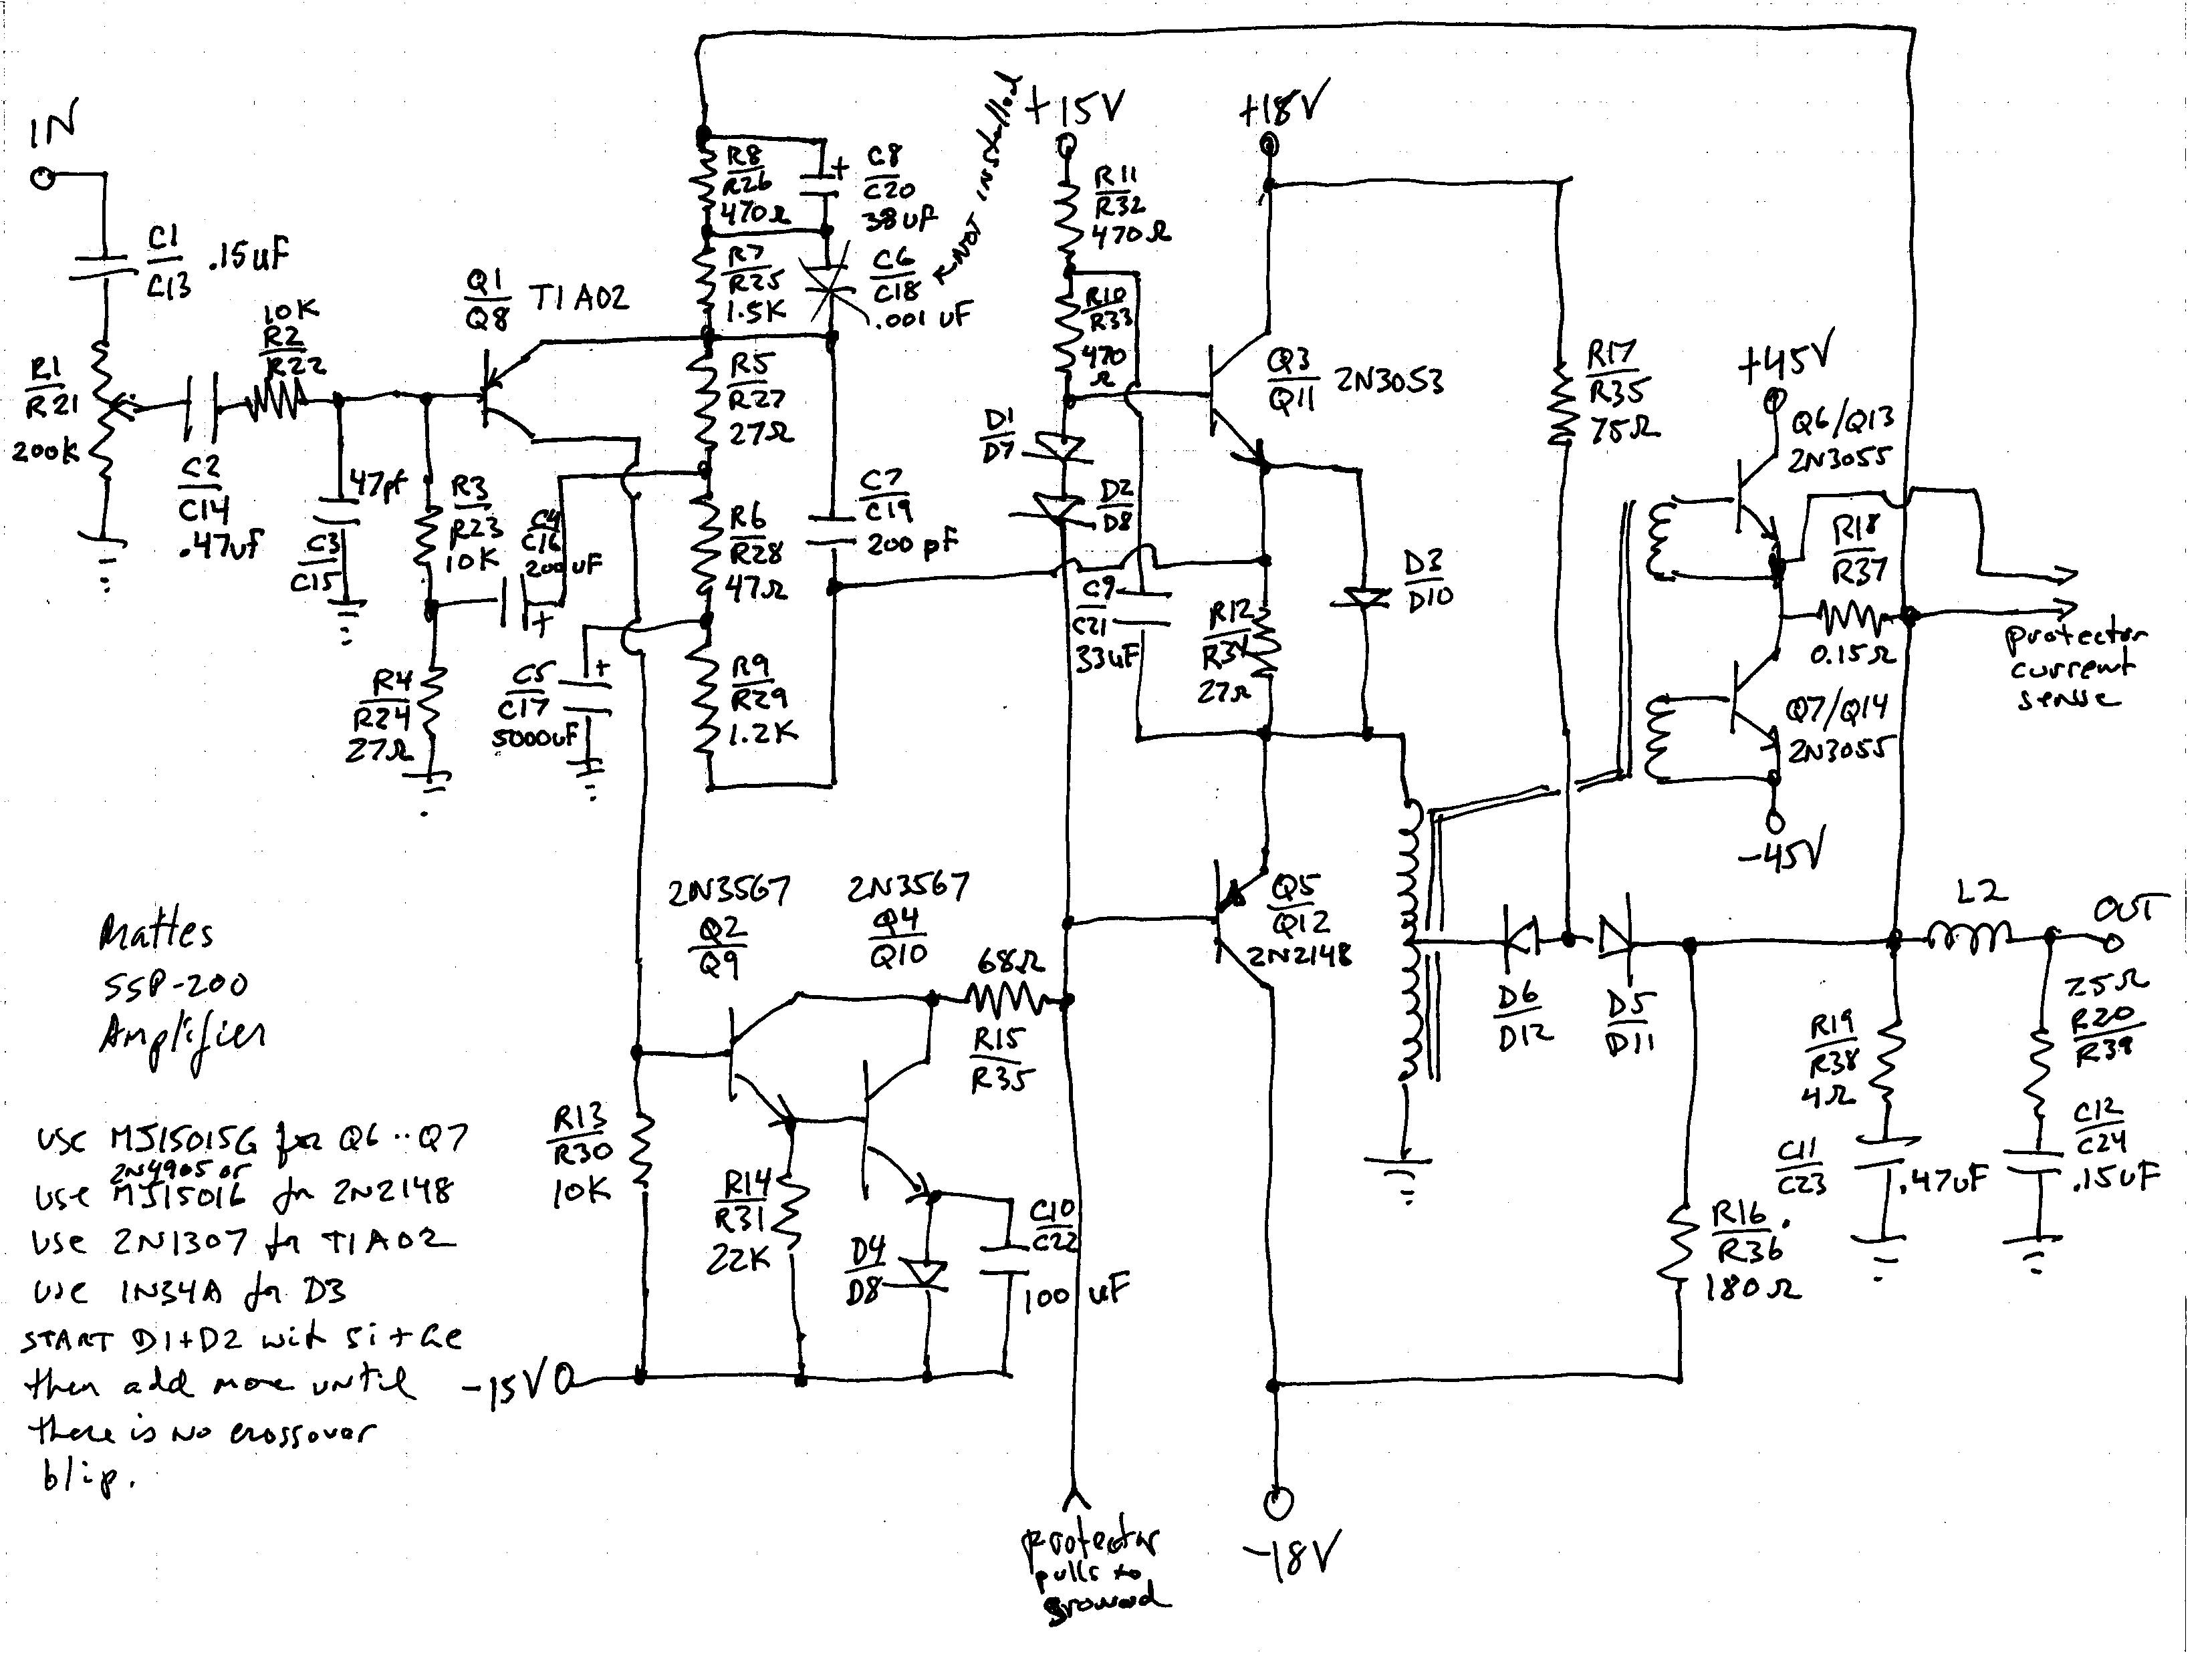 IN
C1
C13
.15uF
R1
R21
200K
C2
C14
.47uF
10K
R2
R22
47pf
C3
C15
R3
R23
10K
R4
R24
27Ω
Q1
Q8
TIA02
C4
C16
200uF
C5
C17
5000uF
R8
R26
470Ω
C8
C20
38uF
+
R7
R25
1.5K
C6
C18
.001uF
NOT INSTALLED
R5
R27
27Ω
R6
R28
47Ω
C7
C19
200pF
R9
R29
1.2K
+
+
+15V
R11
R32
470Ω
R10
R33
470
Ω
D1
D7
D2
D8
C9
C21
33uF
+18V
Q3
Q11
2N3053
R12
R34
27Ω
D3
D10
R17
R35
75Ω
+45V
Q6/Q13
2N3055
R18
R37
0.15Ω
protector
current
sense
Q7/Q14
2N3055
-45V
2N3567
Q2
Q9
2N3567
Q4
Q10
68Ω
R15
R35
Q5
Q12
2N2148
D6
D12
D5
D11
L2
OUT
25Ω
R20
R39
R19
R38
4Ω
C11
C23
.47uF
C12
C24
.15uF
R16
R36
180Ω
R13
R30
10K
R14
R31
22K
D4
D8
C10
C22
100 uF
-15V
protector
pulls to
ground
-18V
Mattes
SSP-200
Amplifier
use MJ15015G for Q6..Q7
2N4905 or
use MJ15016 for 2N2148
use 2N1307 for TIA02
use 1N34A for D3
START D1+D2 with Si+Ge
then add more until
there is no crossover
blip.